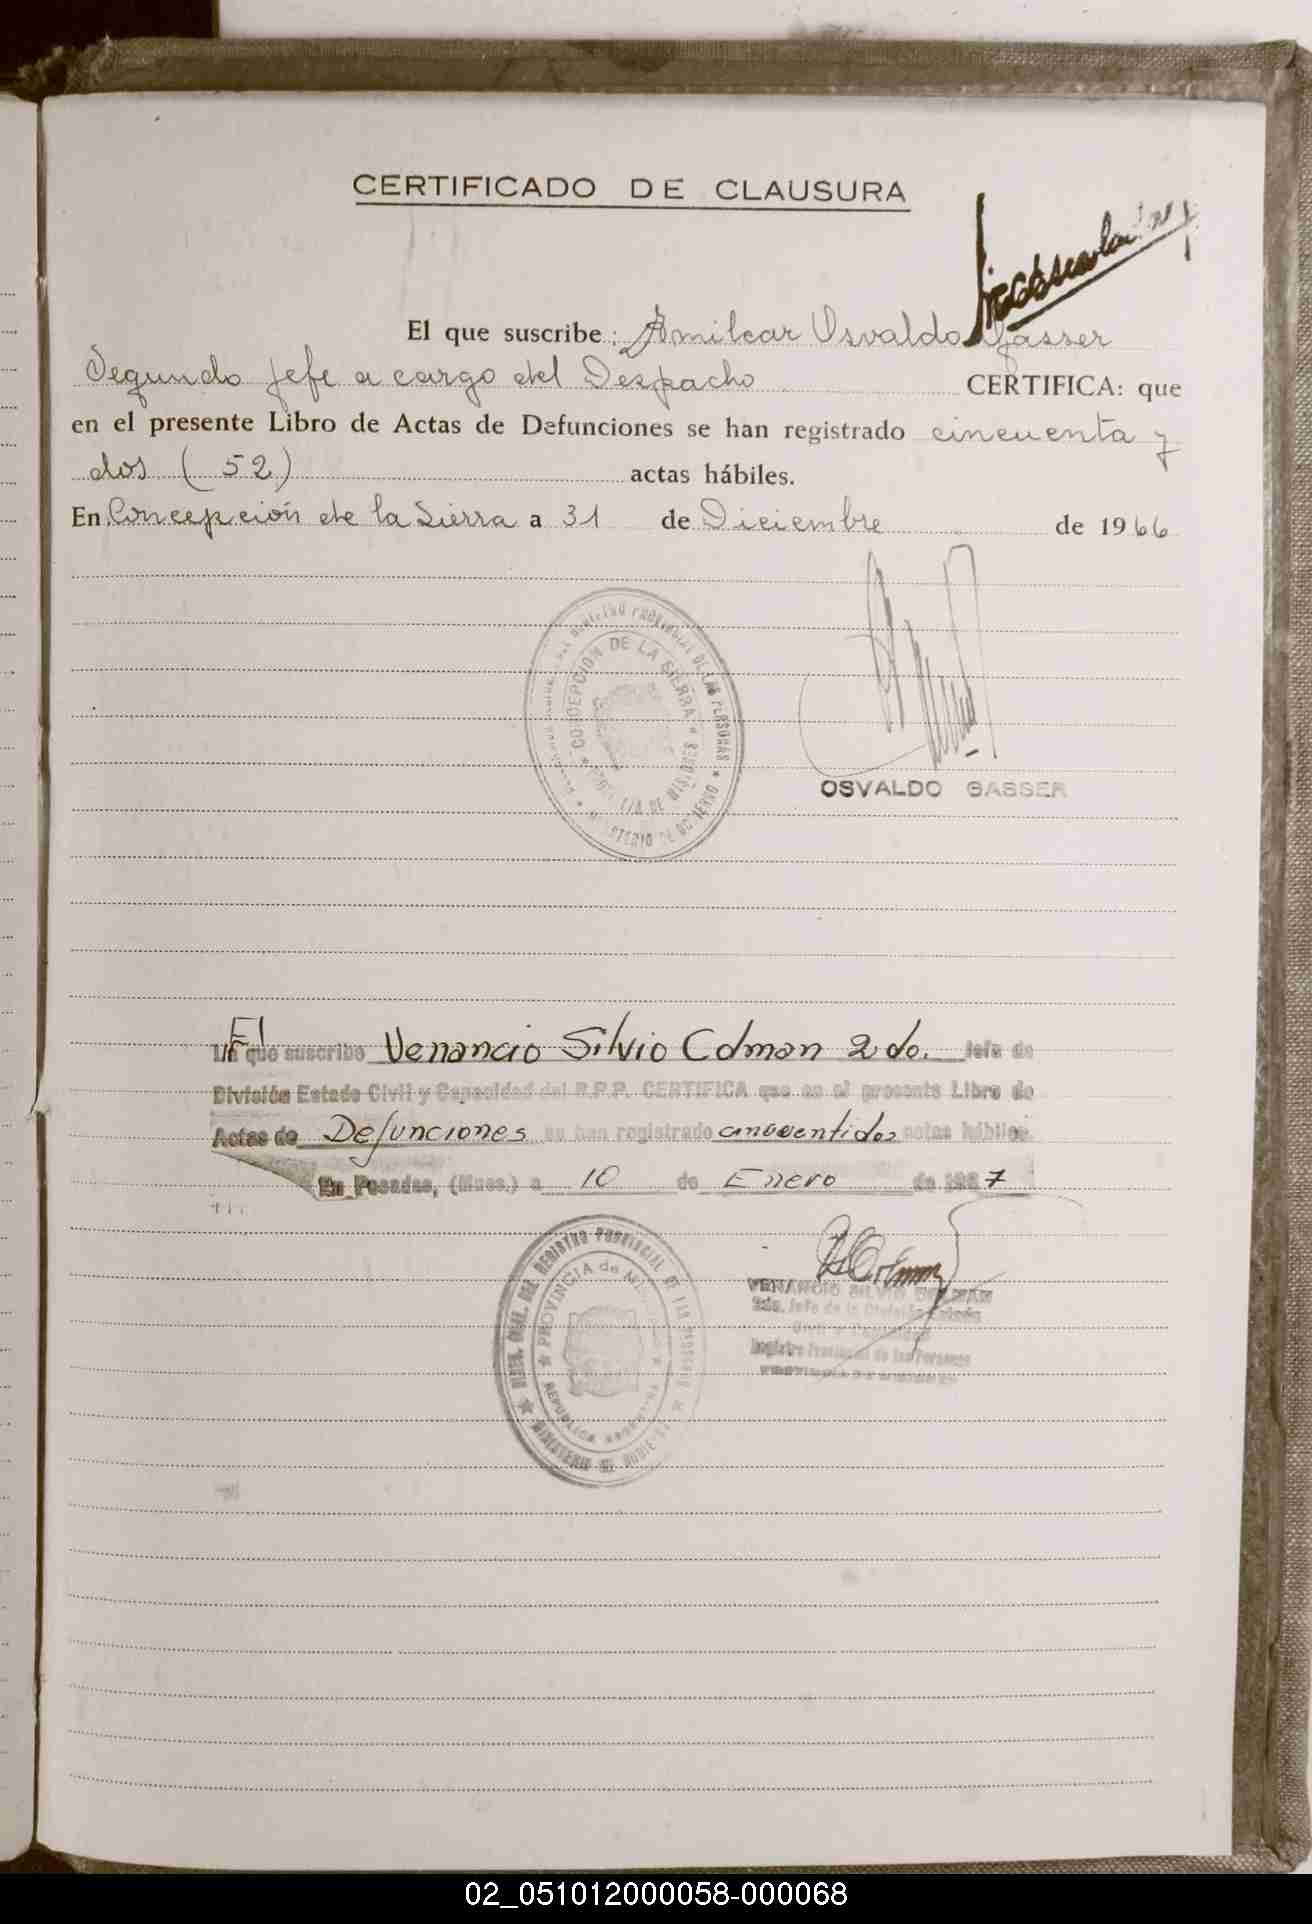 CERTIFICADO DE CLAUSURA
El que suscribe: Amilcar Osvaldo Gasser
Segundo Jefe a cargo del Despacho CERTIFICA: que
en el presente Libro de Actas de Defunciones se han registrado cincuenta y
dos (52) actas hábiles.
En Concepción de la Sierra a 31 de Diciembre de 1966
CONCEPCION DE LA SIERRA
OSVALDO GASSER
El que suscribe Venancio Silvio Colman 2do. Jefe de
División Estado Civil y Capacidad del R.P.P. CERTIFICA que en el presente Libro de
Actas de Defunciones se han registrado cincuentidos actas hábiles.
En Posadas, (Mnes.) a 10 de Enero de 1967
PROVINCIA de MISIONES
REPUBLICA ARGENTINA
VENANCIO SILVIO COLMAN
2do. Jefe de la División Estado
Civil y Capacidad
Registro Provincial de las Personas
PROVINCIA DE MISIONES
02_051012000058-000068